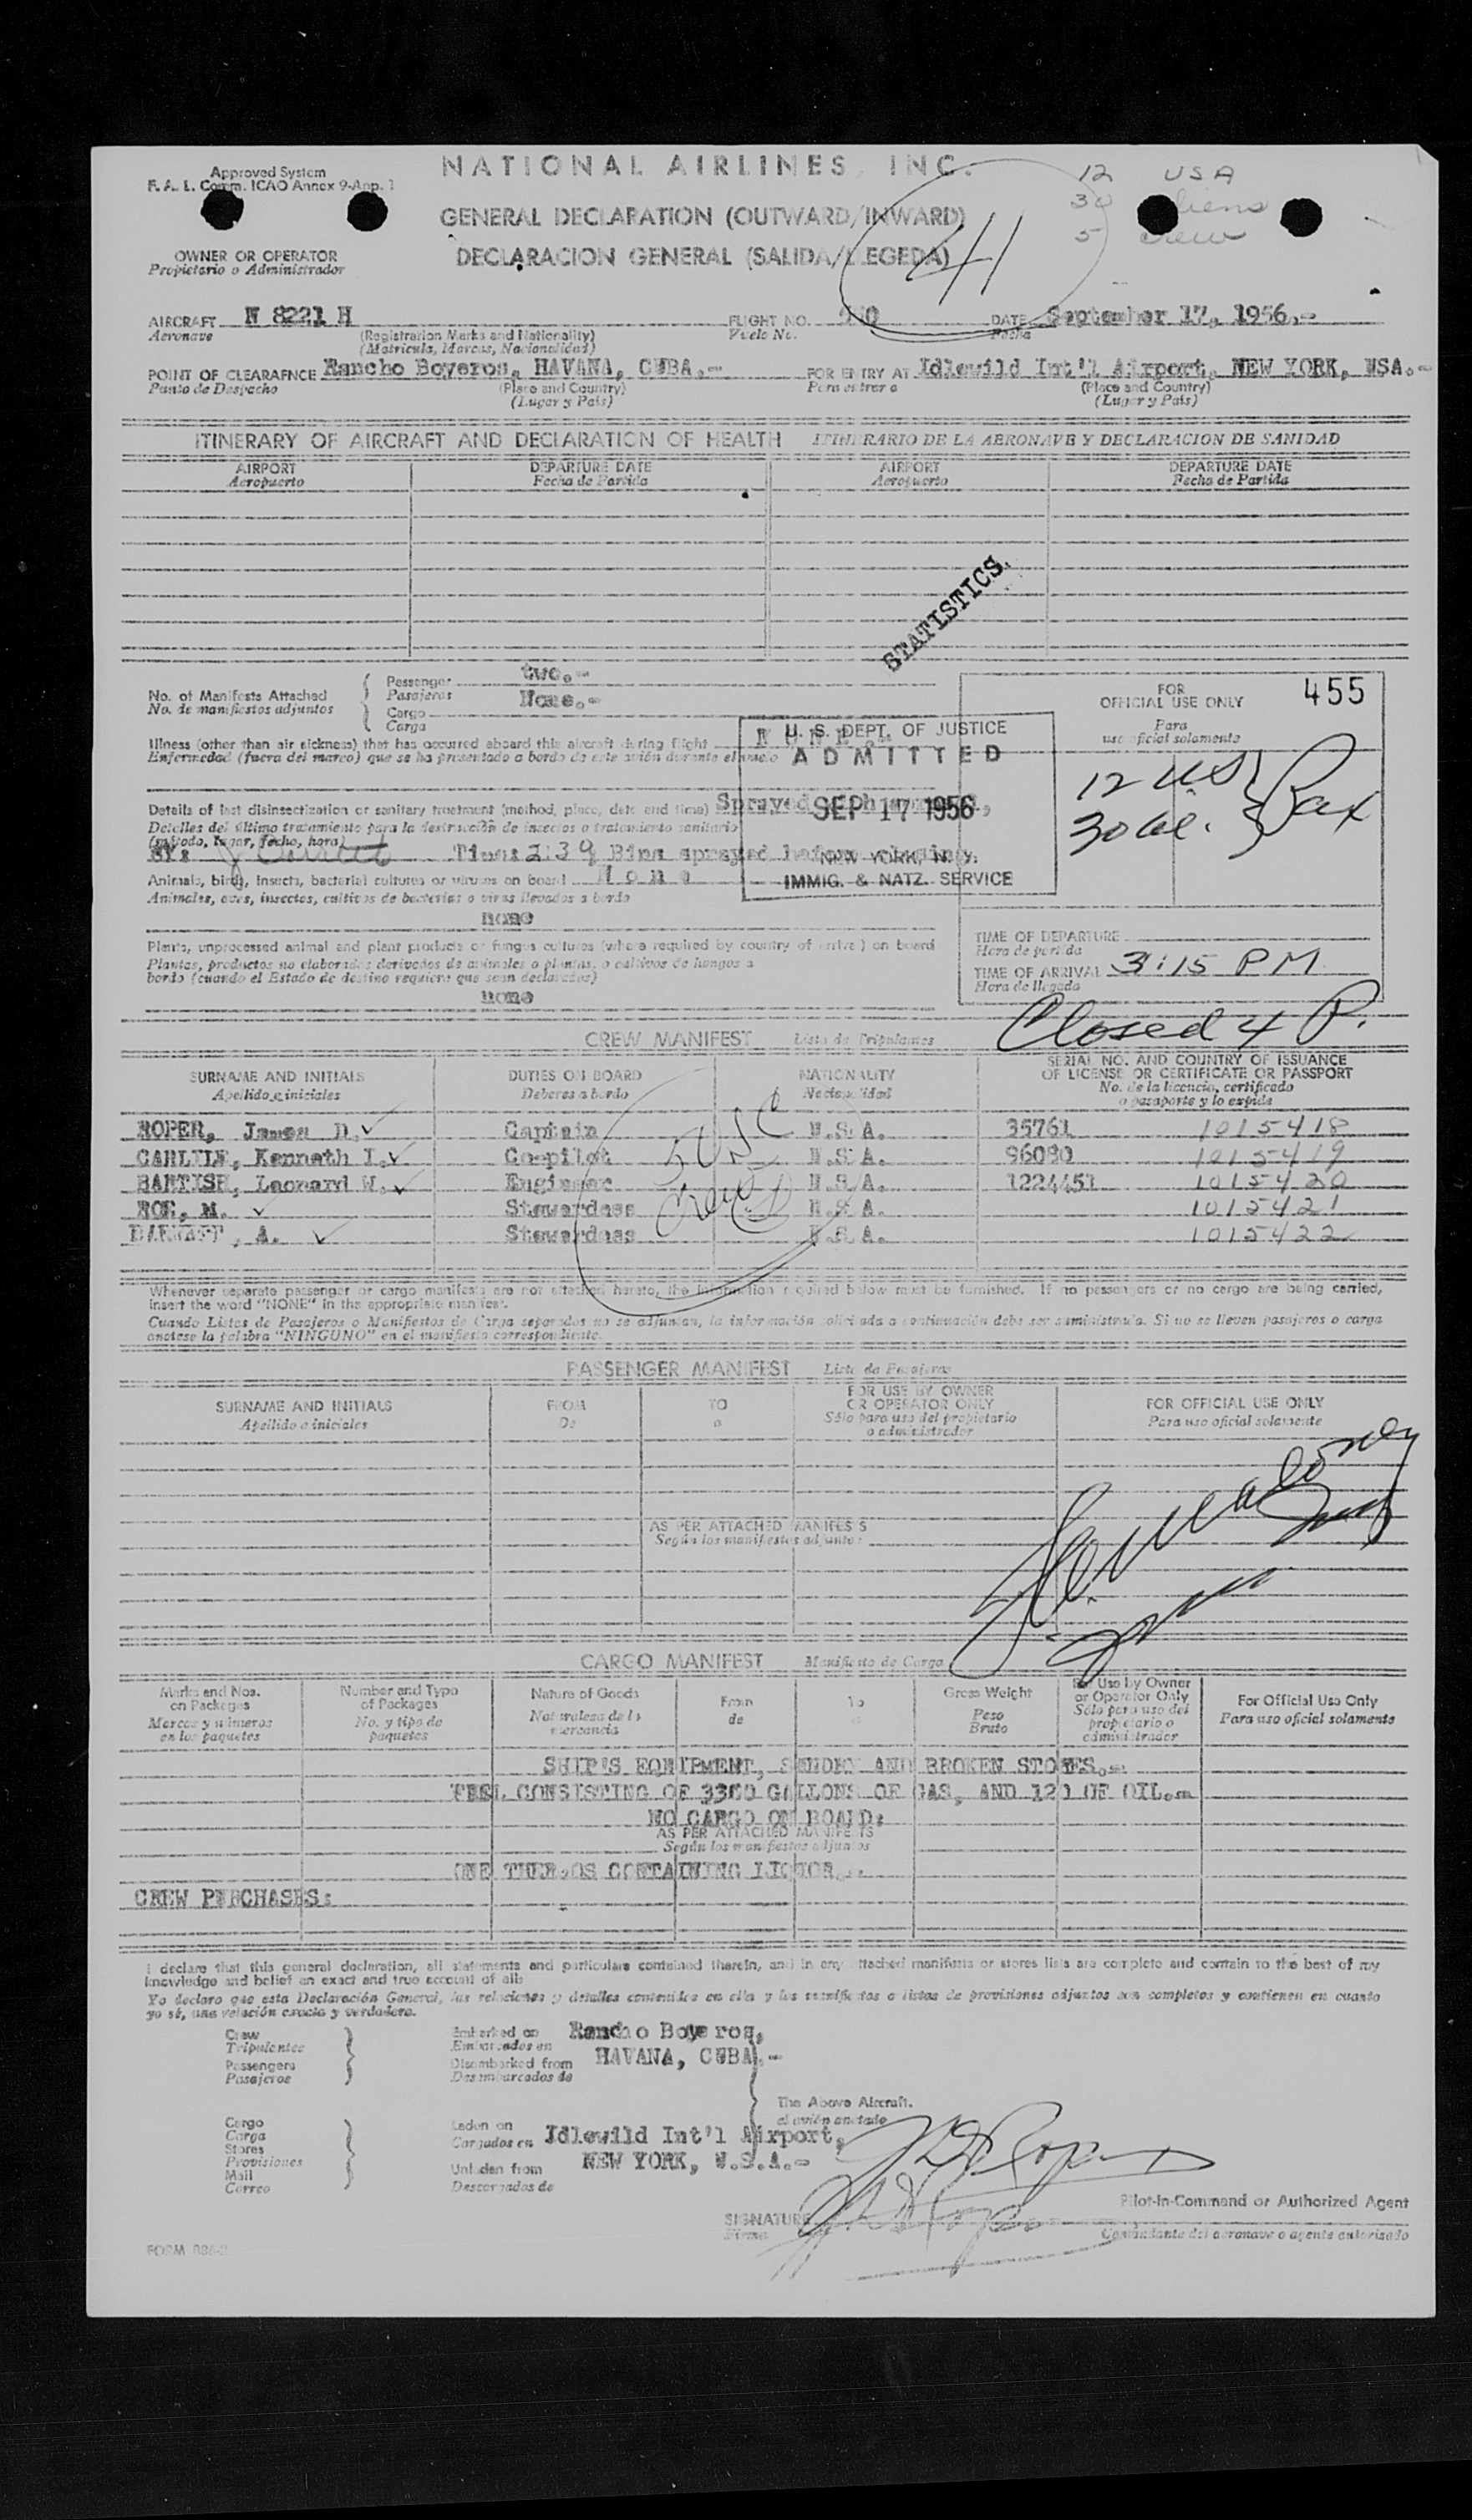 Approved System
F. A. L. Comm. ICAO Annex 9-App. 1
NATIONAL AIRLINES, INC.
12 USA
30 liens
5 crew
GENERAL DECLARATION (OUTWARD/INWARD)
DECLARACION GENERAL (SALIDA/LLEGEDA)
41
OWNER OR OPERATOR
Propietario o Administrador
AIRCRAFT N 8221 H FLIGHT NO. DATE September 17, 1956.-
Aeronave (Registration Marks and Nationality) Vuelo No. Fecha
(Matricula, Marcas, Nacionalidad)
POINT OF CLEARAFNCE Rancho Boyeros, HAVANA, CUBA.- FOR ENTRY AT Idlewild Int'l Airport, NEW YORK, USA.-
Punto de Despacho (Place and Country) Para entrar a (Place and Country)
(Lugar y Pais) (Lugar y Pais)
ITINERARY OF AIRCRAFT AND DECLARATION OF HEALTH ITINERARIO DE LA AERONAVE Y DECLARACION DE SANIDAD
AIRPORT DEPARTURE DATE AIRPORT DEPARTURE DATE
Aeropuerto Fecha de Partida Aeropuerto Fecha de Partida
STATISTICS.
No. of Manifests Attached Passenger two.-
No. de manifiestos adjuntos Pasajeros
Cargo None.-
Carga
FOR OFFICIAL USE ONLY 455
Para uso oficial solamente
Illness (other than air sickness) that has occurred aboard this aircraft during flight
Enfermedad (fuera del mareo) que se ha presentado a bordo de este avión durante el vuelo
U. S. DEPT. OF JUSTICE
ADMITTED
SEP 17 1956
NEW YORK, N. Y.
IMMIG. & NATZ. SERVICE
12 US
30 al. Pax
Details of last disinsectization or sanitary treatment (method, place, date and time) Sprayed
Detalles del último tratamiento para la destrucción de insectos o tratamiento sanitario
(método, lugar, fecha, hora)
BY: Time: 2:39 Bins sprayed before closing.
Animals, birds, insects, bacterial cultures or viruses on board None
Animales, aves, insectos, cultivos de bacterias o virus llevados a bordo
none
Plants, unprocessed animal and plant products or fungus cultures (where required by country of entry) on board
Plantas, productos no elaborados derivados de animales o plantas, o cultivos de hongos a
bordo (cuando el Estado de destino requiere que sean declarados)
none
TIME OF DEPARTURE
Hora de partida
TIME OF ARRIVAL 3:15 PM
Hora de llegada
Closed 4 P.
CREW MANIFEST Lista de Tripulantes
SURNAME AND INITIALS DUTIES ON BOARD NATIONALITY SERIAL NO. AND COUNTRY OF ISSUANCE
OF LICENSE OR CERTIFICATE OR PASSPORT
Apellido e iniciales Deberes a bordo Nacionalidad No. de la licencia, certificado
o pasaporte y lo expida
ROPER, James D. Captain U.S.A. 35761 1015418
CARLILE, Kenneth I. Co-pilot U.S.A. 96080 1015419
BANTISH, Leonard W. Engineer U.S.A. 1224451 1015420
ROE, M. Stewardess U.S.A. 1015421
A. Stewardess U.S.A. 1015422
5 US
Crew
Whenever separate passenger or cargo manifests are not attached hereto, the information required below must be furnished. If no passengers or no cargo are being carried,
insert the word "NONE" in the appropriate manifest.
Cuando Listas de Pasajeros o Manifiestos de Carga separados no se adjuntan, la información solicitada a continuación debe ser suministrada. Si no se lleven pasajeros o carga
anotese la palabra "NINGUNO" en el manifiesto correspondiente.
PASSENGER MANIFEST Lista de Pasajeros
SURNAME AND INITIALS FROM TO FOR USE BY OWNER OR OPERATOR ONLY FOR OFFICIAL USE ONLY
Apellido e iniciales De a Sólo para uso del propietario o administrador Para uso oficial solamente
AS PER ATTACHED MANIFESTS
Según los manifiestos adjuntos
CARGO MANIFEST Manifiesto de Carga
Marks and Nos. on Packages Number and Type of Packages Nature of Goods From To Gross Weight For Use by Owner or Operator Only For Official Use Only
Marcas y números en los paquetes No. y tipo de paquetes Naturaleza de la mercancia de a Peso Bruto Sólo para uso del propietario o administrador Para uso oficial solamente
SHIP'S EQUIPMENT, SUNDRY AND BROKEN STORES.-
FUEL CONSISTING OF 3300 GALLONS OF GAS, AND 120 OF OIL.-
NO CARGO ON BOARD:
AS PER ATTACHED MANIFESTS
Según los manifiestos adjuntos
ONE THERMOS CONTAINING LIQUOR.-
CREW PURCHASES:
I declare that this general declaration, all statements and particulars contained therein, and in any attached manifests or stores lists are complete and contain to the best of my
knowledge and belief an exact and true account of all:
Yo declaro que esta Declaración General, las relaciones y detalles contenidos en ella y los manifiestos o listas de provisiones adjuntos son completos y contienen en cuanto
yo sé, una relación exacta y verdadera.
Crew Embarked on Rancho Boyeros,
Tripulantes Embarcados en
Passengers Disembarked from HAVANA, CUBA.-
Pasajeros Desembarcados de
The Above Aircraft.
el avión anotado
Cargo Laden on Idlewild Int'l Airport,
Carga Cargados en
Stores NEW YORK, U.S.A.-
Provisiones
Mail Unladen from
Correo Descargados de
J D Roper
SIGNATURE J D Roper Pilot-in-Command or Authorized Agent
Firma Comandante del aeronave o agente autorizado